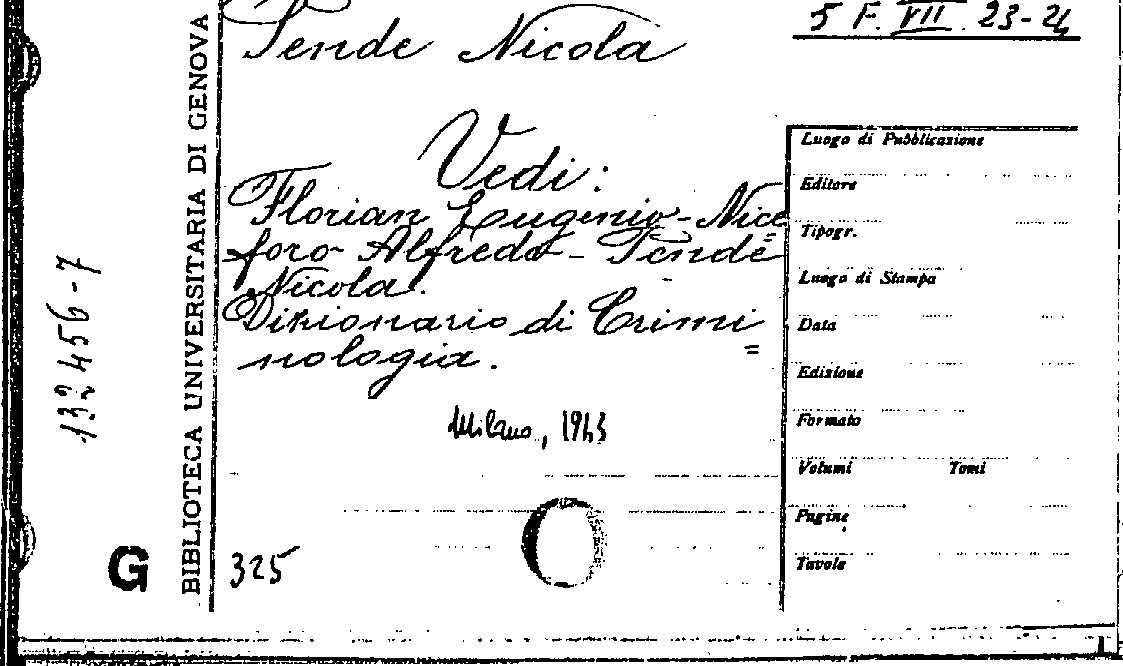 5 F. VII. 23-24
Pende Nicola
Vedi:
Florian Eugenio - Nice
foro Alfredo - Pende
Nicola.
Dizionario di Crimi=
nologia.
Milano, 1943
325
G
132456-7
BIBLIOTECA UNIVERSITARIA DI GENOVA
Luogo di Pubblicazione
Editore
Tipogr.
Luogo di Stampa
Data
Edizione
Formato
Volumi Tomi
Pagine
Tavole